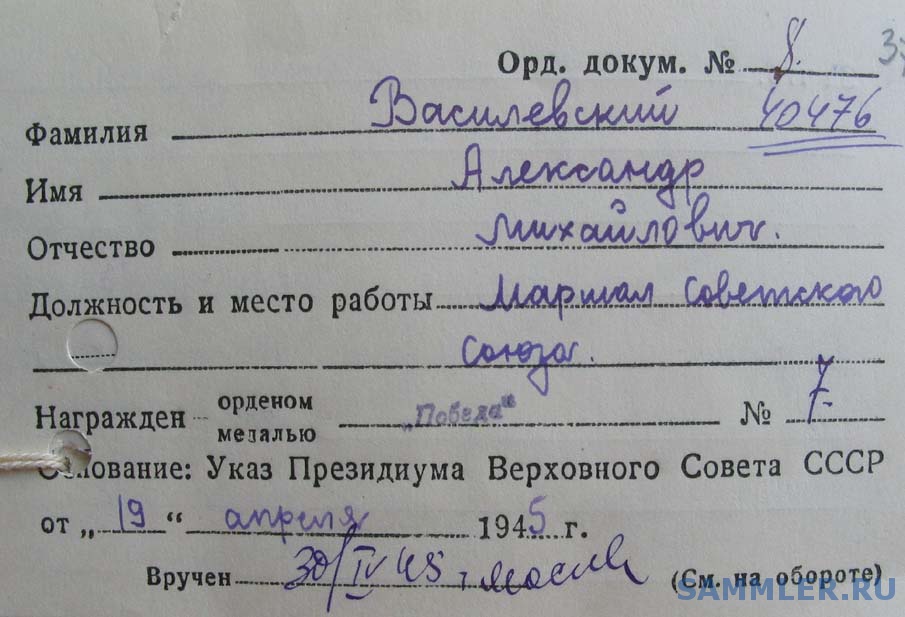 Орд. докум. № 8. 37
Фамилия Василевский 40476
Имя Александр
Отчество Михайлович.
Должность и место работы Маршал Советского
Союза.
Награжден орденом медалью „Победа“ № 7.
Основание: Указ Президиума Верховного Совета СССР
от „19“ апреля 1945 г.
Вручен 30/IV 45, (См. на обороте)
SAMMLER.RU